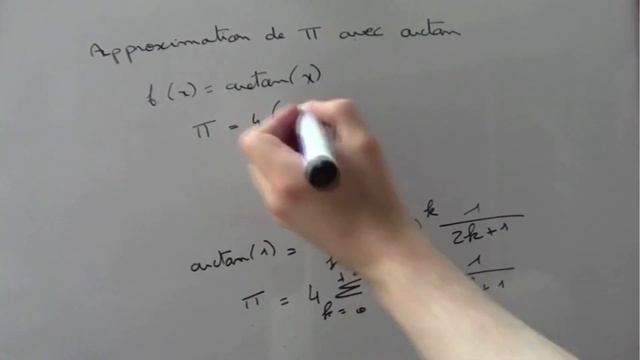 Approximation de π avec arctan
f(x) = arctan(x)
π = 4(
arctan(1) = k 1/2k+1
π = 4 Σ k=0 1/+1